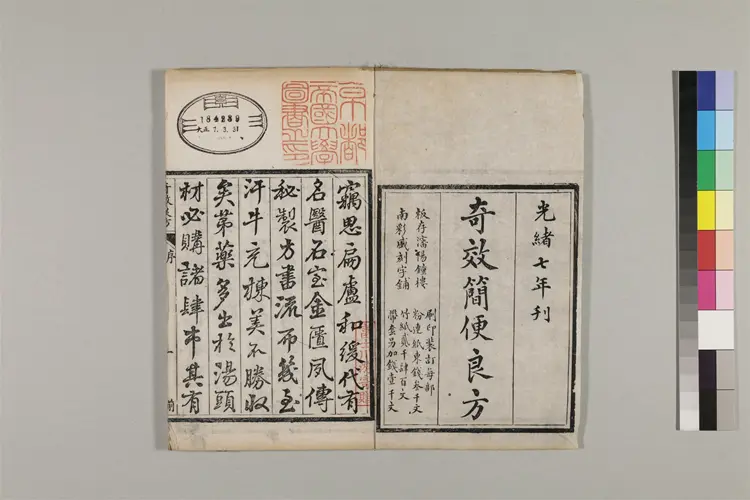 光緒七年刊
奇效簡便良方
板存瀋陽鐘樓
南彩盛刻字鋪
刷印裝訂每部
粉連紙東錢叁千文
竹紙貳千肆百文
帶套另加錢壹千文
京都
帝國大學
圖書之印
184239
大正 7. 3. 31
竊思扁盧和緩代有
名醫石室金匱夙傳
秘製方書流布幾至
汗牛充棟美不勝收
矣第藥多出於湯頭
材必購諸肆中其有
序
一